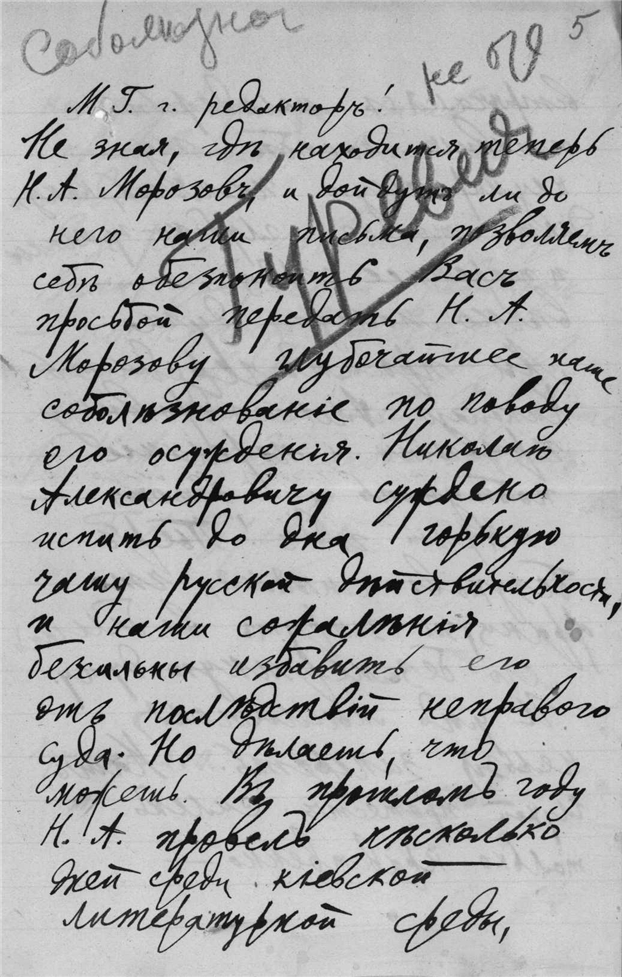 5
не
М Г. г. редакторъ!
Не зная, гдѣ находится теперь
Н. А. Морозовъ, и дойдутъ ли до
него наши письма, позволяемъ
себѣ обезпокоить Васъ
Гуревич
просьбой передать Н. А.
Морозову глубочайшее наше
соболѣзнованіе по поводу
его осужденія. Николаю
Александровичу суждено
испить до дна горькую
чашу русской дѣйствительности,
и наши сожалѣнія
безсильны избавить его
отъ послѣдствій неправого
суда. Но дѣлаешь, что
можешь. Въ прошломъ году
Н. А. провелъ нѣсколько
дней среди кіевской
литературной среды,